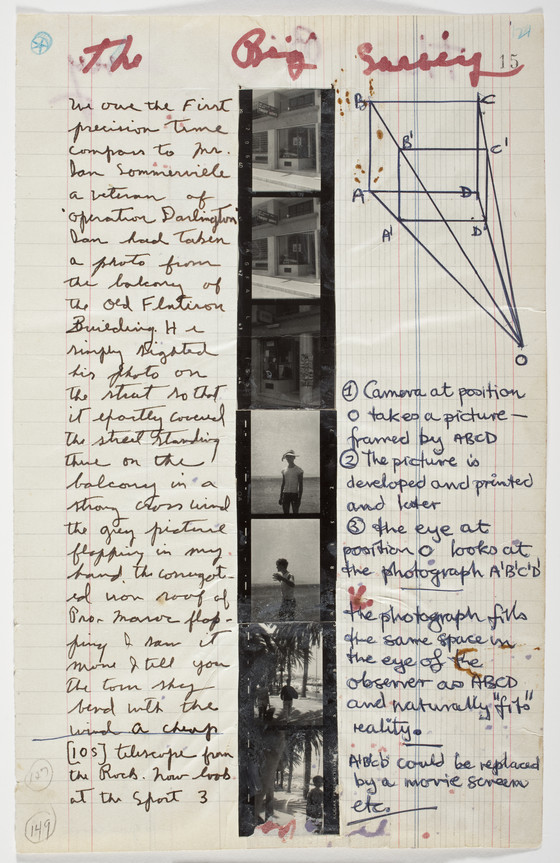 the Big Survey
15
We owe the First
precision time
compass to Mr.
Ian Sommerville
a veteran of
"operation Darlington"
Ian had taken
a photo from
the balcony of
the Old Flatiron
Building. He
simply sighted
his photo on
the street so that
it exactly covered
the street Standing
there on the
balcony in a
strong cross wind
the grey picture
flapping in my
hand, the corrugat-
ed iron roof of
Pro. Maroc flap-
ping I saw it
move I tell you
the torn sky
bend with the
wind A cheap
[10s] telescope from
the Rock. Now look
at the Spot 3
149
B
C
B'
C'
A
D
A'
D'
O
① Camera at position
O takes a picture —
framed by ABCD
② The picture is
developed and printed
and later
③ the eye at
position O looks at
the photograph A'B'C'D'
the photograph fills
the same space in
the eye of the
observer as ABCD
and naturally "fits"
reality.
A'B'C'D' could be replaced
by a movie screen
etc.